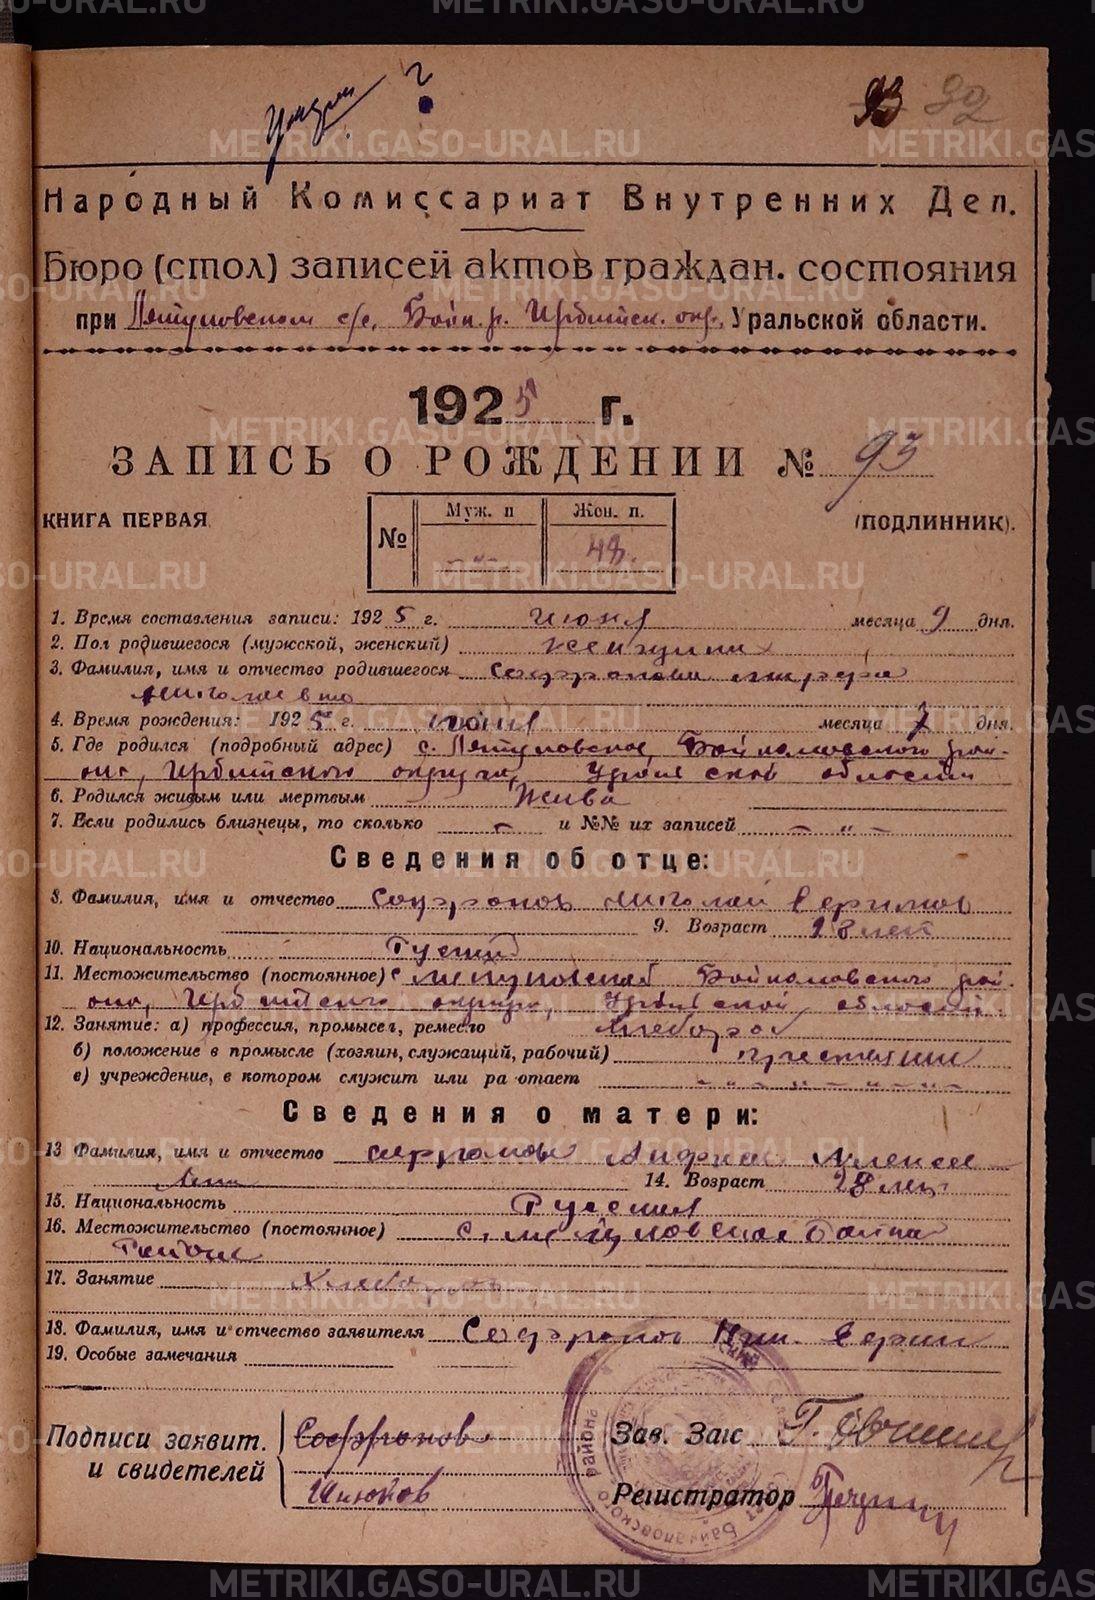 93 92
Народный Комиссариат Внутренних Дел.
Бюро (стол) записей актов граждан. состояния
при с/с. Байк. р. Ирбитск. окр., Уральской области.
1925 г.
ЗАПИСЬ О РОЖДЕНИИ № 93
КНИГА ПЕРВАЯ (ПОДЛИННИК).
№ Муж. п Жен. п.
- " - 48.
1. Время составления записи: 1925 г. июня месяца 9 дня.
2. Пол родившегося (мужской, женский) женщина
3. Фамилия, имя и отчество родившегося Софронова
Николаевна
4. Время рождения: 1925 г. июня месяца 7 дня.
5. Где родился (подробный адрес) с. Байкаловского рай-
она, Ирбитского округа, Уральской области
6. Родился живым или мертвым Жива
7. Если родились близнецы, то сколько - и №№ их записей - " -
Сведения об отце:
8. Фамилия, имя и отчество Софронов Николай
9. Возраст 28 лет
10. Национальность Русский
11. Местожительство (постоянное) с Байкаловского рай-
она, Ирбитского округа, Уральской области
12. Занятие: а) профессия, промысел, ремесло Хлебороб
б) положение в промысле (хозяин, служащий, рабочий)
в) учреждение, в котором служит или ра отает - " - " - " - " -
Сведения о матери:
13 Фамилия, имя и отчество Софронова Алексе
14. Возраст 28 лет
15. Национальность Русская
16. Местожительство (постоянное) с.
Района
17. Занятие Хлебороб
18. Фамилия, имя и отчество заявителя Софронов Ник.
19. Особые замечания
Подписи заявит. Софронов Зав. Загс
и свидетелей
Регистратор
района Байкаловского
METRIKI.GASO-URAL.RU